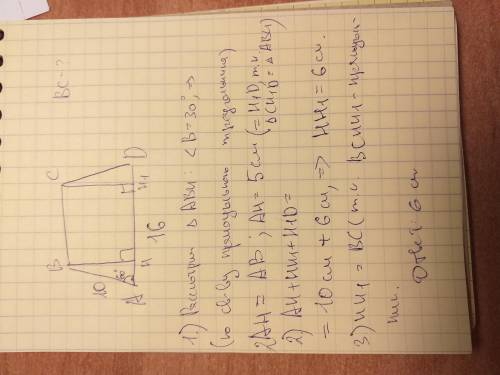 BC - ?
B
C
10
60°
A
H
16
H1
D
1.) Рассмотрим △ ABH: <B=30°, ⇒
(по св-ву прямоугольного треугольника)
2AH = AB; AH = 5 см (= H1D, т.к.
△CH1D = △ABH)
2) AH + HH1 + H1D =
= 10 см + 6 см, ⇒ HH1 = 6 см.
3) HH1 = BC (т.к. BCHH1 - прямоуголь-
ник.
Ответ: 6 см